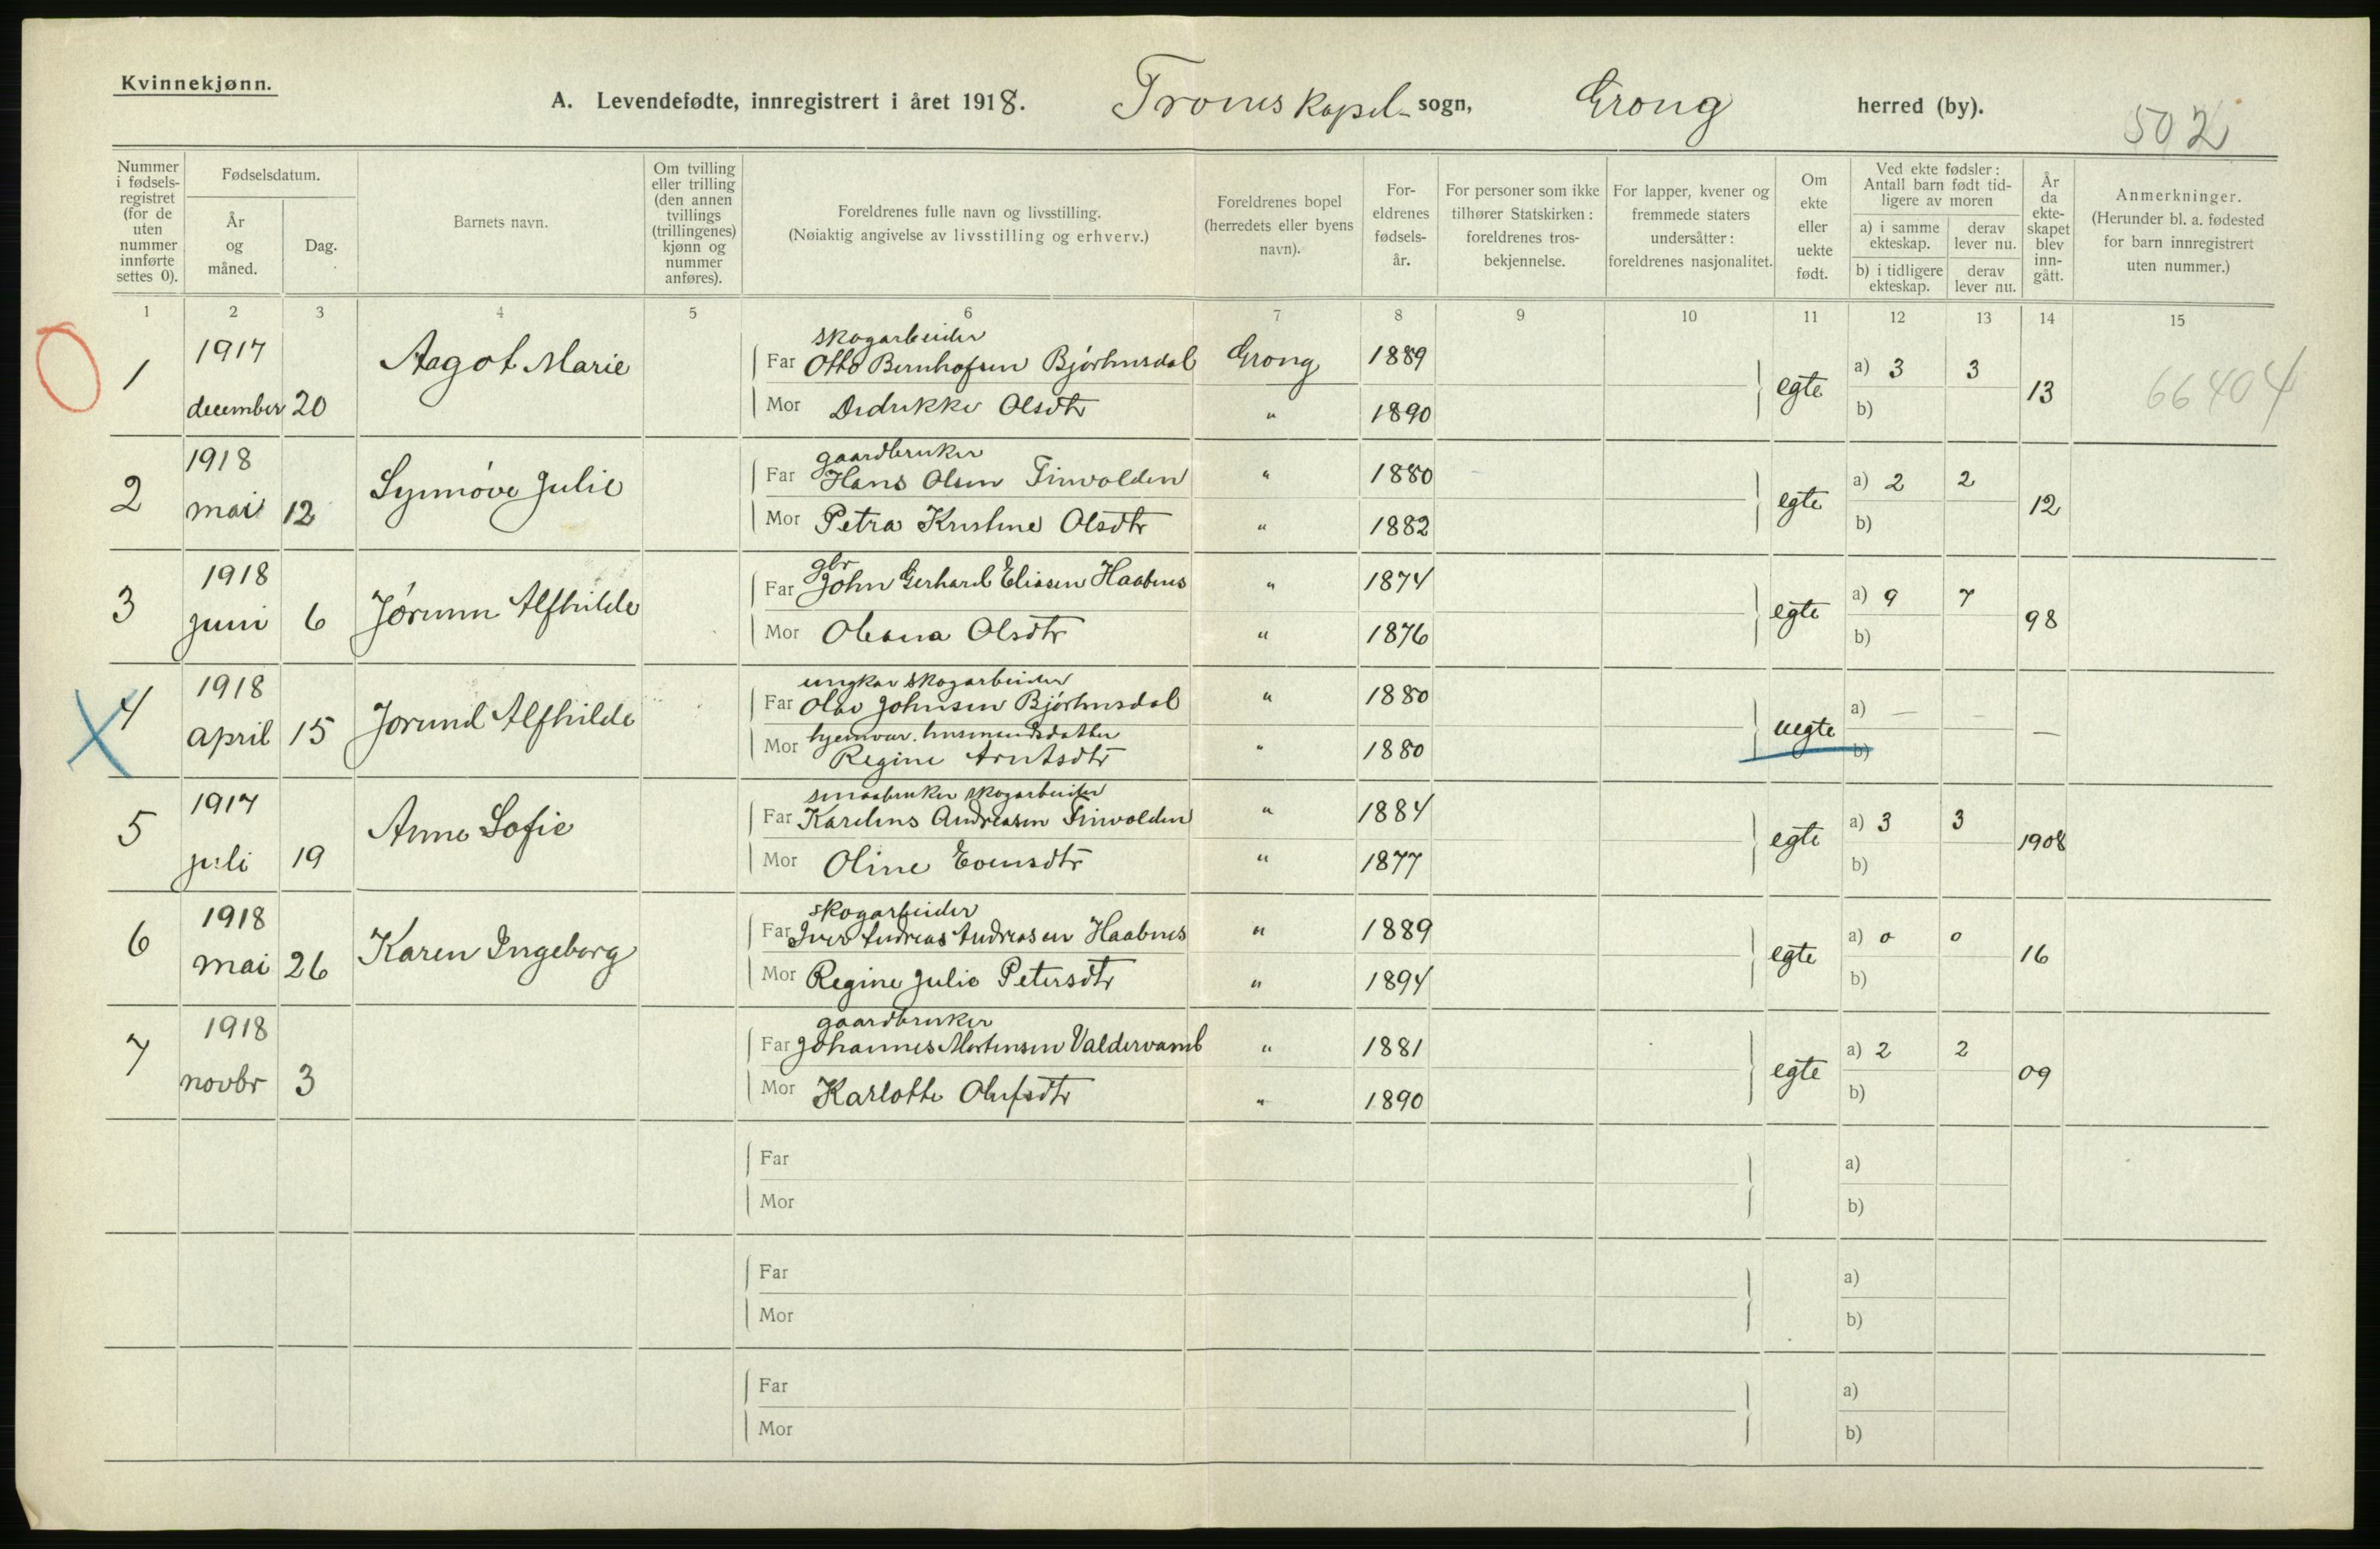 Kvinnekjønn.
A. Levendefødte, innregistrert i året 1918. Trones Kapel- sogn, Grong herred (by).
502
Nummer i fødselsregistret (for de uten nummer innførte settes 0).
Fødselsdatum.
År og måned.
Dag.
Barnets navn.
Om tvilling eller trilling (den annen tvillings (trillingenes) kjønn og nummer anføres).
Foreldrenes fulle navn og livsstilling.
(Nøiaktig angivelse av livsstilling og erhverv.)
Foreldrenes bopel (herredets eller byens navn).
Foreldrenes fødselsår.
For personer som ikke tilhører Statskirken: foreldrenes trosbekjennelse.
For lapper, kvener og fremmede staters undersåtter: foreldrenes nasjonalitet.
Om ekte eller uekte født.
Ved ekte fødsler: Antall barn født tidligere av moren
a) i samme ekteskap.
derav lever nu.
b) i tidligere ekteskap.
derav lever nu.
År da ekteskapet blev inngått.
Anmerkninger.
(Herunder bl. a. fødested for barn innregistrert uten nummer.)
1 2 3 4 5 6 7 8 9 10 11 12 13 14 15
1 1917 december 20 Aagot Marie
skogarbeider
Far Otto Bernhofsen Bjørhusdal Grong 1889
Mor Didrikke Olsdtr " 1890
egte a) 3 3 b) 13
66404
2 1918 mai 12 Synnøve Julie
gaardbruker
Far Hans Olsen Finvolden " 1880
Mor Petra Kristine Olsdtr " 1882
egte a) 2 2 b) 12
3 1918 juni 6 Jørunn Alfhilde
gbr
Far John Gerhard Eliasen Haabnes " 1874
Mor Oleana Olsdtr " 1876
egte a) 9 7 b) 98
4 1918 april 15 Jorund Alfhilde
ungkar skogarbeider
Far Olav Johnsen Bjørhusdal " 1880
hjemvær. husmandsdatter
Mor Regine Arntsdtr " 1880
uegte a) — — b) —
5 1917 juli 19 Anne Sofie
smaabruker skogarbeider
Far Karelius Andreasen Finvolden " 1884
Mor Oline Evensdtr " 1877
egte a) 3 3 b) 1908
6 1918 mai 26 Karen Ingeborg
skogarbeider
Far Iver Andreas Andreasen Haabnes " 1889
Mor Regine Julie Petersdtr " 1894
egte a) 0 0 b) 16
7 1918 novbr 3
gaardbruker
Far Johannes Mortensen Valdervamb " 1881
Mor Karlotte Olufsdtr " 1890
egte a) 2 2 b) 09
Far a)
Mor b)
Far a)
Mor b)
Far a)
Mor b)